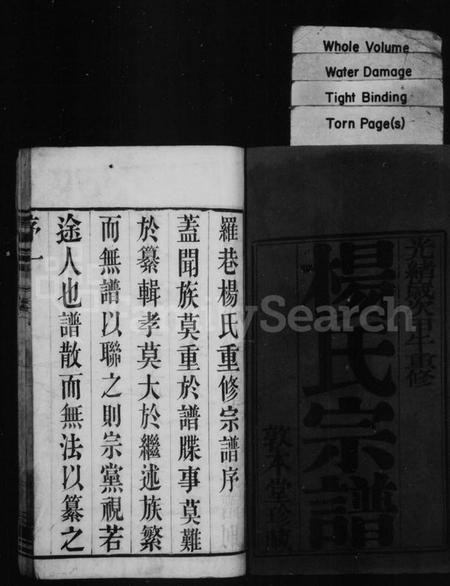 Whole Volume
Water Damage
Tight Binding
Torn Page(s)
光緒歲次甲午重修
楊氏宗譜
敦本堂
羅巷楊氏重修宗譜序
蓋聞族莫重於譜牒事莫難
於纂輯孝莫大於繼述族繁
而無譜以聯之則宗黨視若
途人也譜散而無法以纂之
序 一
FamilySearch